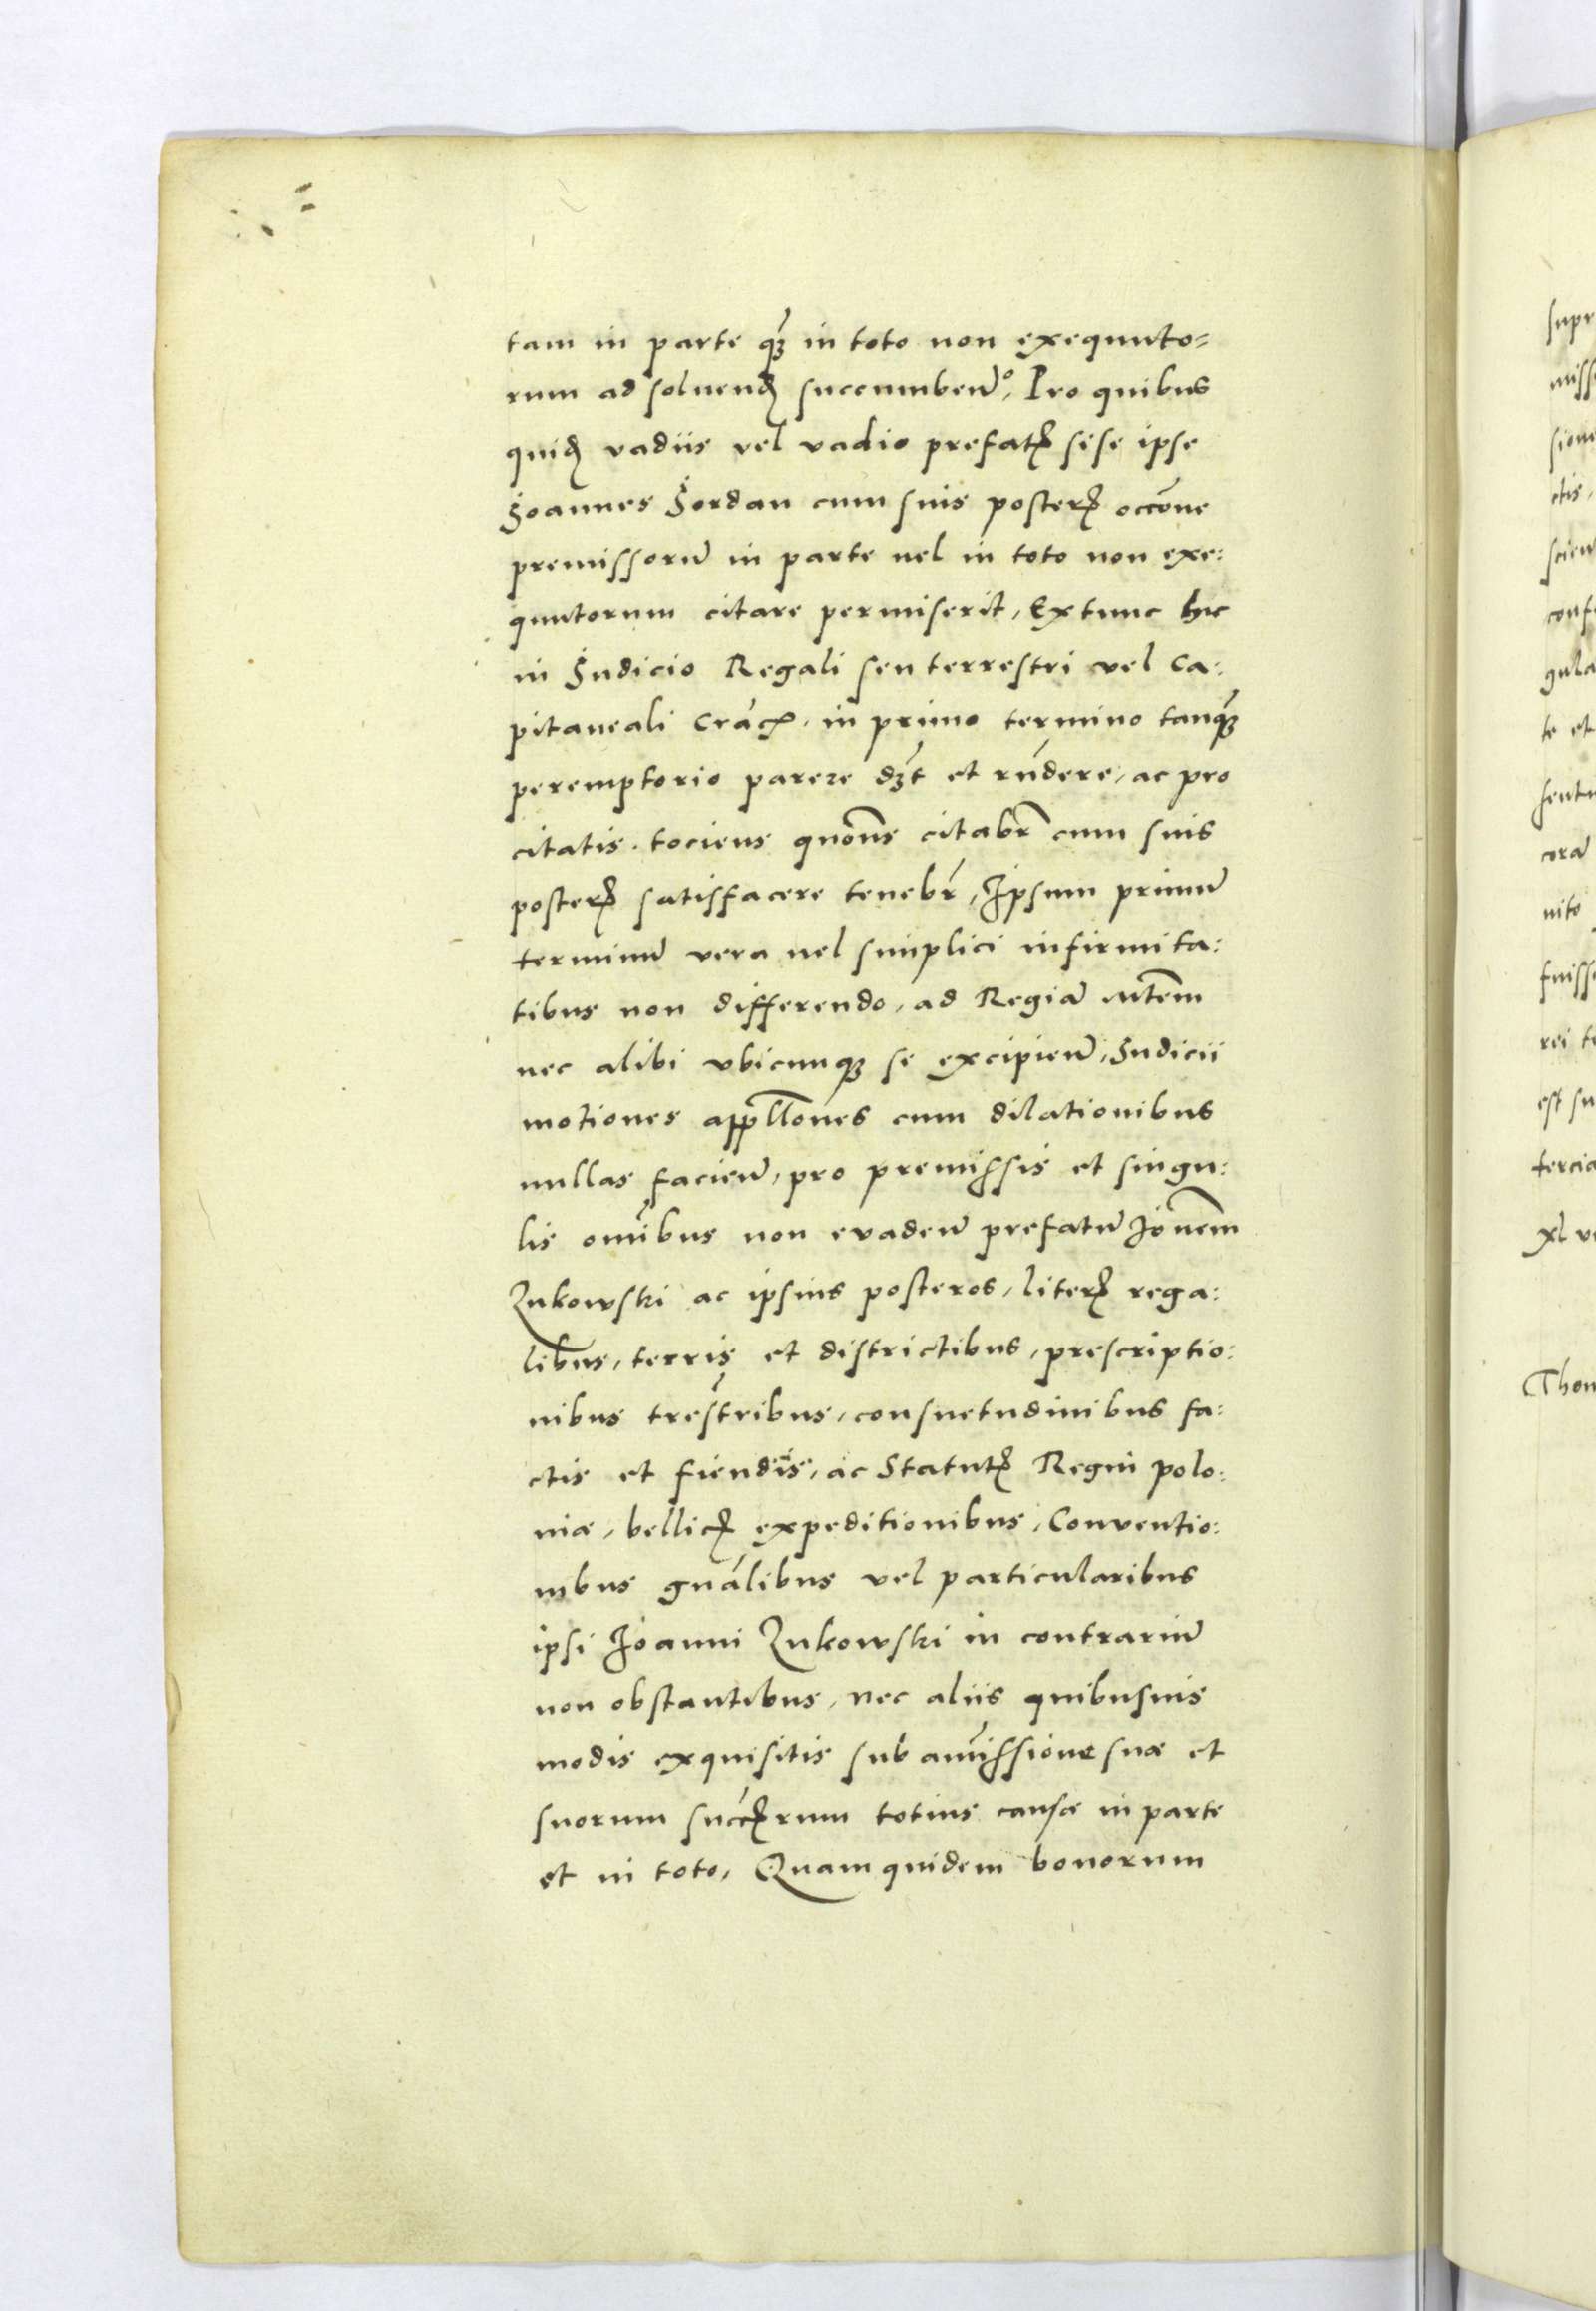 tam in parte qꝫ in toto non exequuto=
rum ad soluenꝺ succumbeñ. Pro quibus
quiꝺ vadiis vel vadio prefatꝭ sese ipse
Joannes Jordan cum suis posterꝭ occõne
premissorũ in parte uel in toto non exe:
quutorum citare permiserit, Extunc hic
in Judicio Regali seu terrestri vel Ca:
pitaneali Cracꝭ. in primo termino tanqꝫ
peremptorio parere dꝫt et rñdere, ac pro
citatis. tociens quõns citabr̃ cum suis
posterꝭ satisfacere tenebr̃, Ipsum primũ
terminũ vera uel simplici infirmita:
tibus non differendo, ad Regiã Mtem
nec alibi vbicunqꝫ se excipieñ, Judicii
motiones appllones cum dilationibus
nullas facieñ, pro premissis et singu:
lis om̃ibus non evadeñ prefatũ Joñem
Zukowski ac ipsius posteros, literꝭ rega:
libus, terris et districtibus, prescriptio:
nibus tres̃tribus, consuetudinibus fa:
ctis et fiendis, ac Statutꝭ Regni polo:
niæ, bellicꝭ expeditionibus, Conventio:
nibus gnãlibus vel particularibus
ipsi Joanni Zukowski in contrariũ
non obstantibus, nec aliis quibusuis
modis exquisitis sub amissione suæ et
suorum succꝭrum totius causæ in parte
et in toto, Quam quidem bonorum
supr
miss
sione
ctis,
scien
conf
gula
te et
sentu
corã
nito
fuiss
rei te
est su
tercia
xl ve
Thom